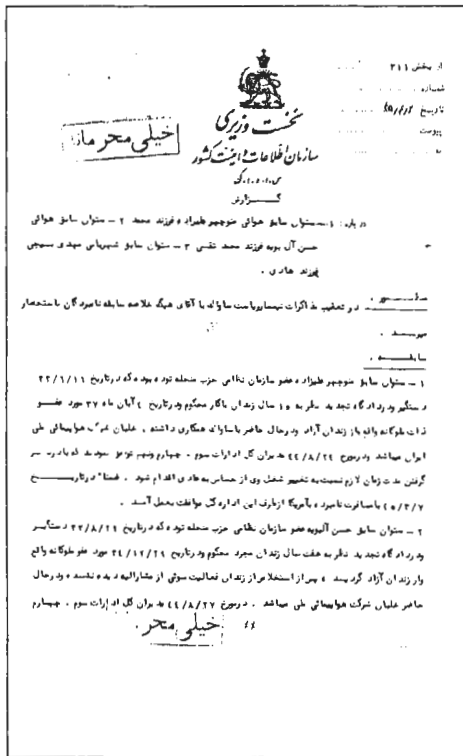 از بخش ۳۱۱
شماره
تاریخ
پیوست
نخست وزیری
سازمان اطلاعات و امنیت کشور
س.ا.و.ا.ک
خیلی محرمانه
گزارش
درباره : ۱ـ ستوان سابق هوائی منوچهر فرزند محمد ۲ ـ ستوان سابق هوائی
حسن آل بویه فرزند محمد تقی ۳ ـ ستوان سابق شهربانی مهدی
فرزند هادی .
منظور :
در تعقیب مذاکرات تیمسار ریاست ساواک با آقای خلاصه سابقه نامبردگان باستحضار
میرسد .
سابقه :
۱ ـ ستوان سابق منوچهر عضو سازمان نظامی حزب منحله توده بوده که در تاریخ
دستگیر و در دادگاه تجدید نظر به ۱۵ سال زندان با کار محکوم و در تاریخ آبان ماه ۳۷ مورد عفو
ملوکانه واقع و از زندان آزاد و در حال حاضر با ساواک همکاری داشته ، خلبان هواپیمائی ملی
ایران میباشد و در مورخ مدیران کل ادارات سوم ، چهارم و نهم که با در نظر
گرفتن مدت زمان لازم نسبت به تغییر شغل وی از حساس به عادی اقدام شود . ضمنا" در تاریخ
با مسافرت نامبرده بآمریکا از طرف این اداره کل موافقت بعمل آمد .
۲ ـ ستوان سابق حسن آلبویه عضو سازمان نظامی حزب منحله توده که در تاریخ دستگیر
و در دادگاه تجدید نظر به هفت سال زندان مجرد محکوم و در تاریخ مورد عفو ملوکانه واقع
و از زندان آزاد گردیده پس از استخلاص از زندان فعالیت سوئی از مشارالیه دیده نشده و در حال
حاضر خلبان شرکت هواپیمائی ملی میباشد . در مورخ مدیران کل ادارات سوم ، چهارم
خیلی محر